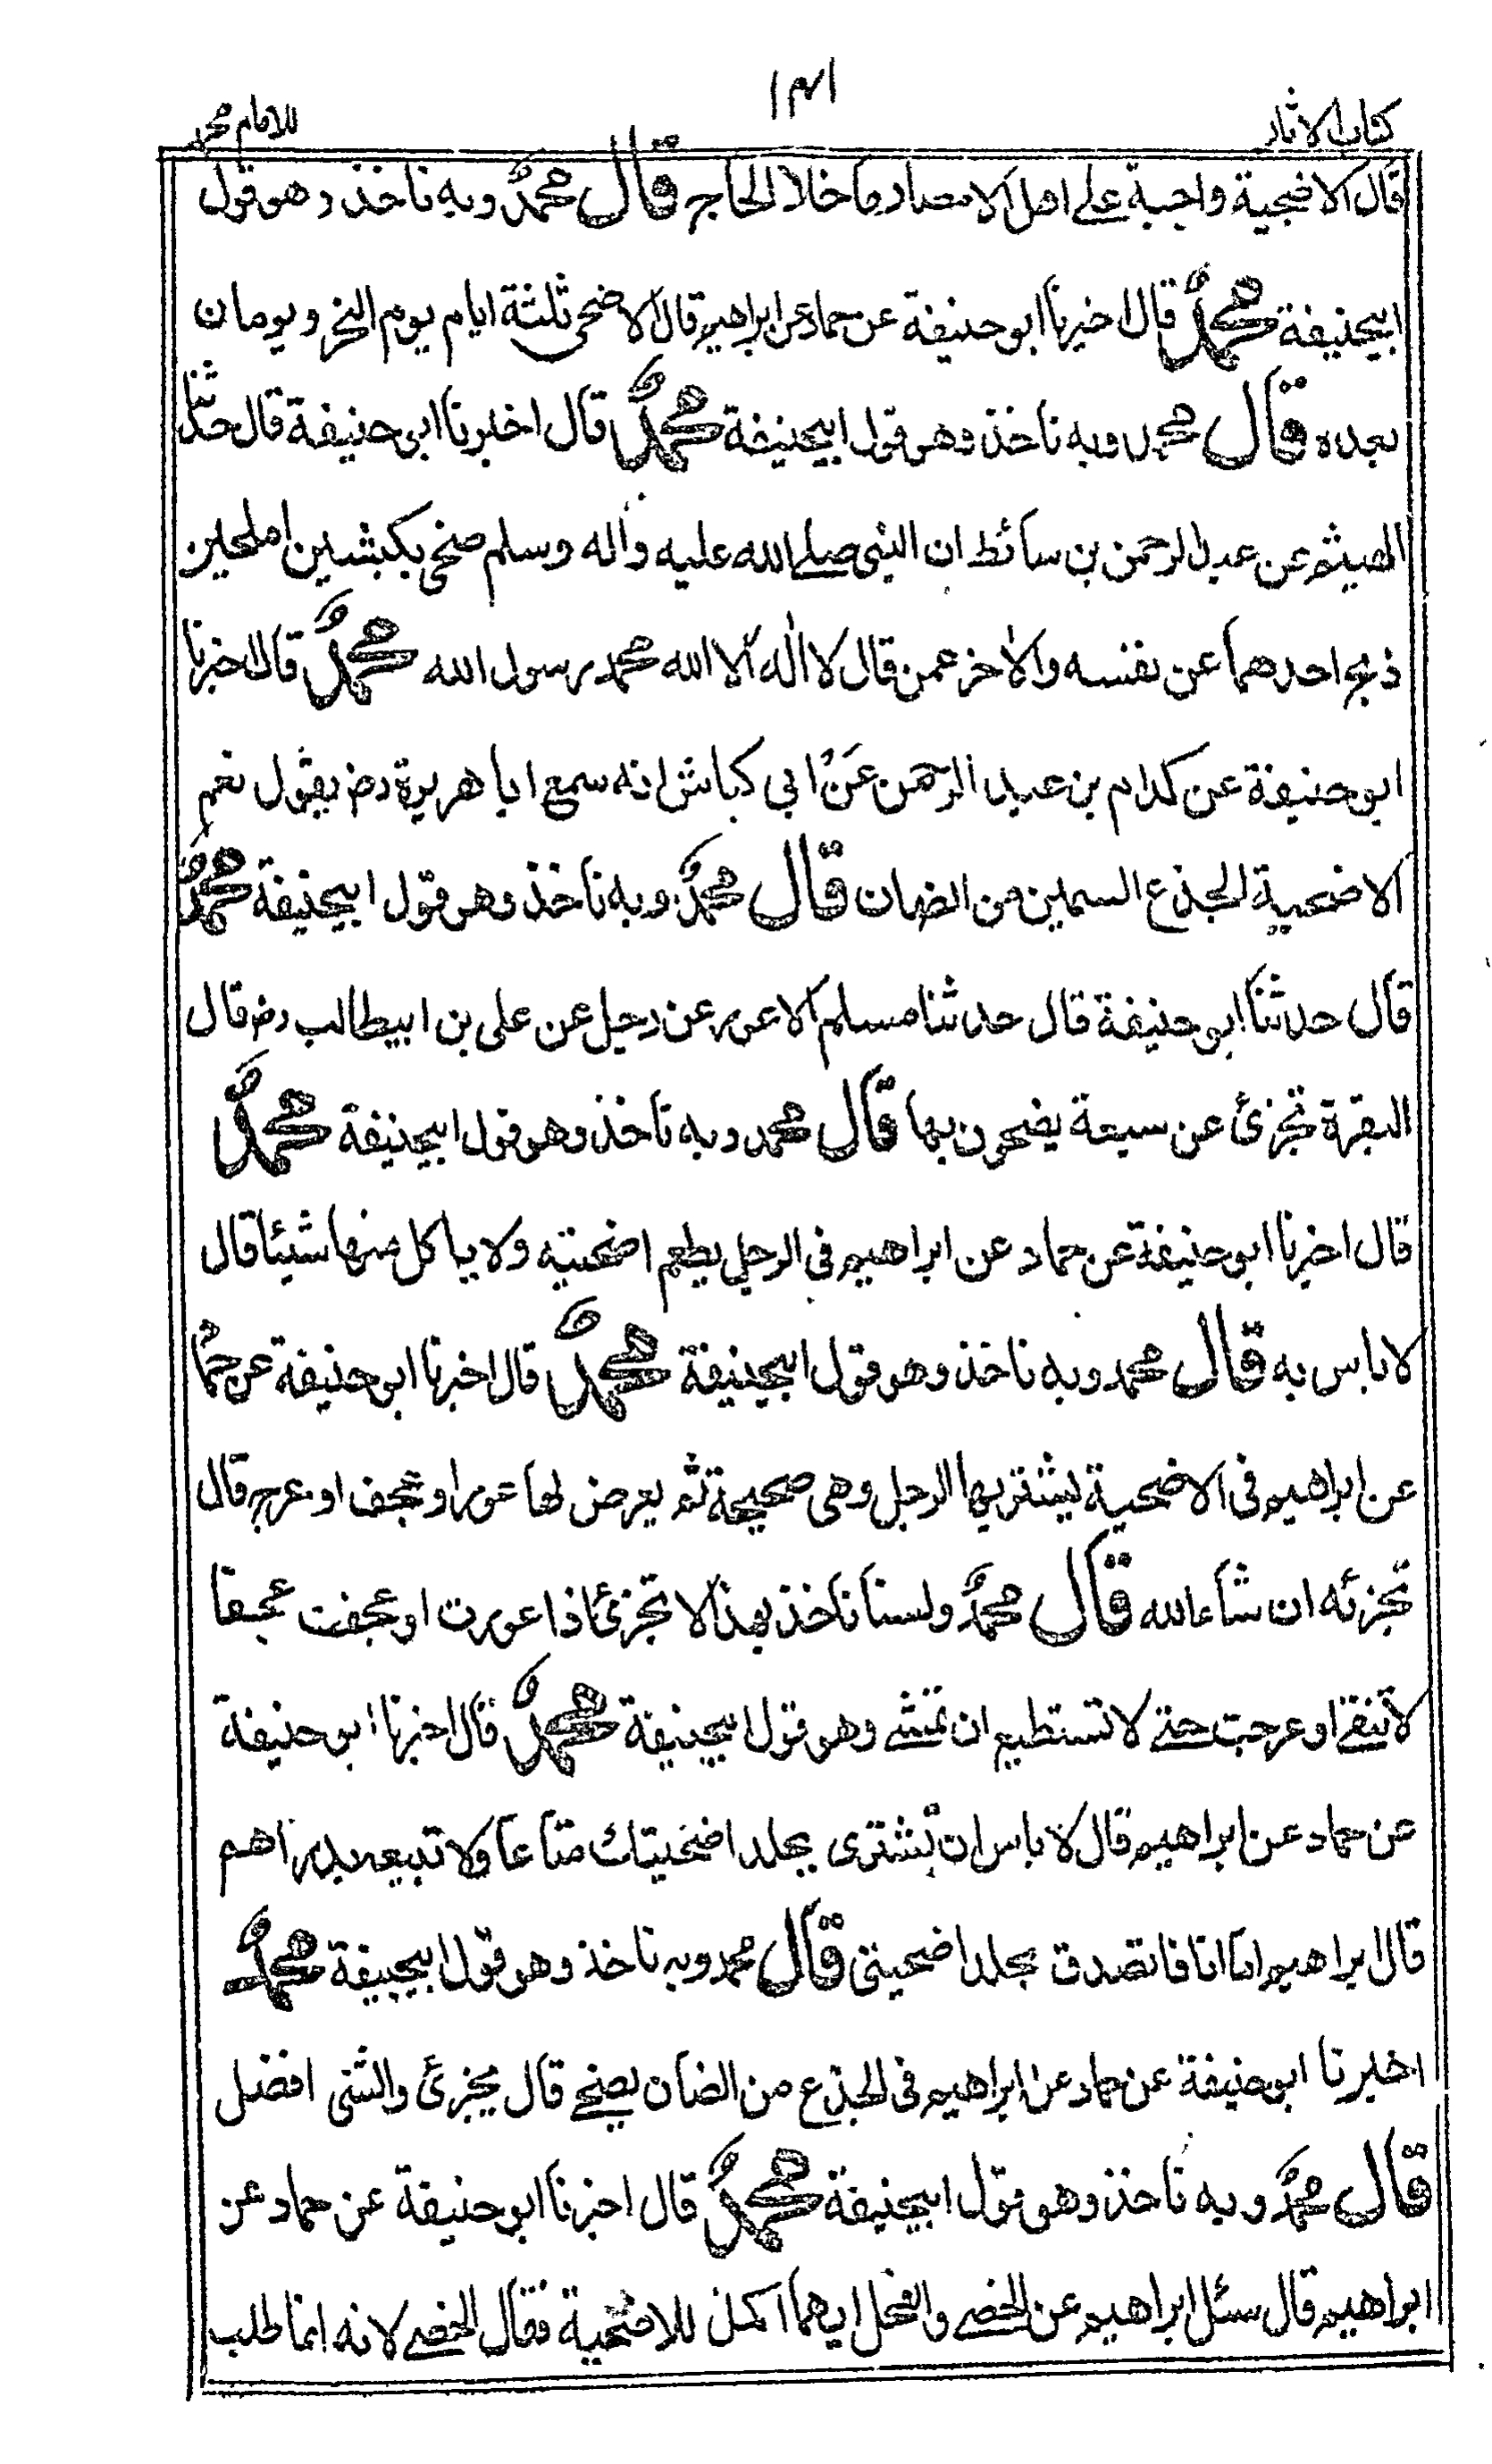 كتاب الاثار
١٣١
للامام محمد
قال الاضحية واجبة على اهل الامصار ما خلا الحاج قال محمد وبه ناخذ وهو قول
ابيحنيفة محمد قال اخبرنا ابو حنيفة عن حماد عن ابراهيم قال الاضحى ثلثة ايام يوم النحر ويومان
بعده قال محمد وبه ناخذ وهو قول ابيحنيفة محمد قال اخبرنا ابى حنيفة قال حدثنا
الهيثم عن عبد الرحمن بن سائط ان النبي صلى الله عليه واله وسلم ضحى بكبشين املحين
ذبح احدهما عن نفسه والاخر عمن قال لا اله الا الله محمد رسول الله محمد قال اخبرنا
ابو حنيفة عن كدام بن عبد الرحمن عن ابي كباش انه سمع ابا هريرة رض يقول نعم
الاضحية الجذع السمين من الضان قال محمد وبه ناخذ وهو قول ابيحنيفة محمد
قال حدثنا ابو حنيفة قال حدثنا مسلم الاعور عن رجل عن على بن ابيطالب رض قال
البقرة تجزئ عن سبعة يضحون بها قال محمد وبه ناخذ وهو قول ابيحنيفة محمد
قال اخبرنا ابو حنيفة عن حماد عن ابراهيم فى الرجل يطعم اضحيته ولا ياكل منها شيئا قال
لا باس به قال محمد وبه ناخذ وهو قول ابيحنيفة محمد قال اخبرنا ابو حنيفة عن حماد
عن ابراهيم فى الاضحية يشتريها الرجل وهى صحيحة ثم يعرض لها عور او عجف او عرج قال
تجزئه ان شاء الله قال محمد ولسنا ناخذ بهذا لا تجزئ اذا عورت او عجفت عجفا
لا تنقى او عرجت حتى لا تستطيع ان تمشى وهو قول ابيحنيفة محمد قال اخبرنا ابو حنيفة
عن حماد عن ابراهيم قال لا باس ان تشترى بجلد اضحيتك متاعا ولا تبيعه بدراهم
قال ابراهيم اما انا فاتصدق بجلد اضحيتى قال محمد وبه ناخذ وهو قول ابيحنيفة محمد
اخبرنا ابو حنيفة عن حماد عن ابراهيم فى الجذع من الضان يضحى قال يجزئ والثنى افضل
قال محمد وبه ناخذ وهو قول ابيحنيفة محمد قال اخبرنا ابو حنيفة عن حماد عن
ابراهيم قال سئل ابراهيم عن الخصى والفحل ايهما اكمل للاضحية فقال الخصى لانه انما طلب